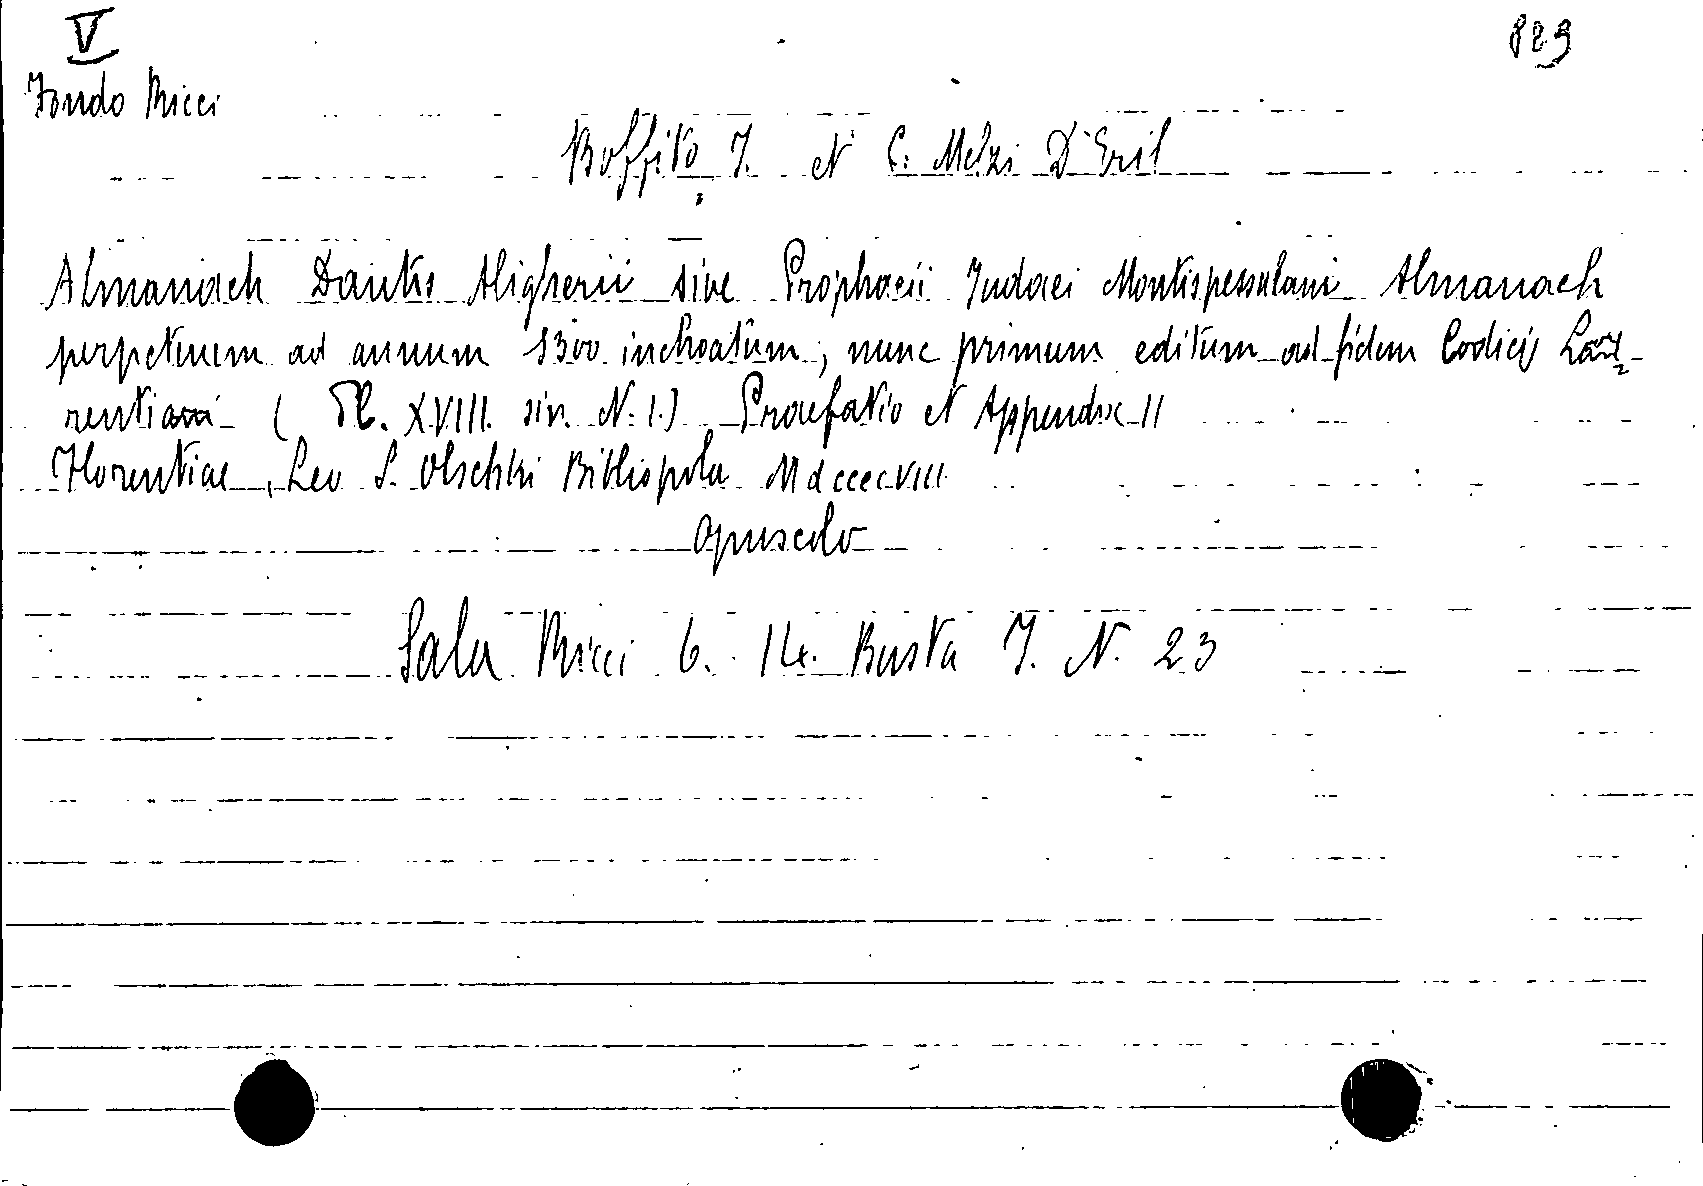 V
829
Fondo Ricci
Boffito, J. et C. Melzi D'Eril
Almanach Dantis Aligherii sive Prophacii Judaei Montispessulani Almanach
perpetuum ad annum 1300 inchoatum, nunc primum editum ad fidem Codicis Lau-
rentiani ( Pl. XVIII. sin. N. 1.) Praefatio et Appendix II
Florentiae, Leo S. Olschki Bibliopola MdccccVIII
opuscolo
Sala Ricci 6. 14. Busta J. N. 23